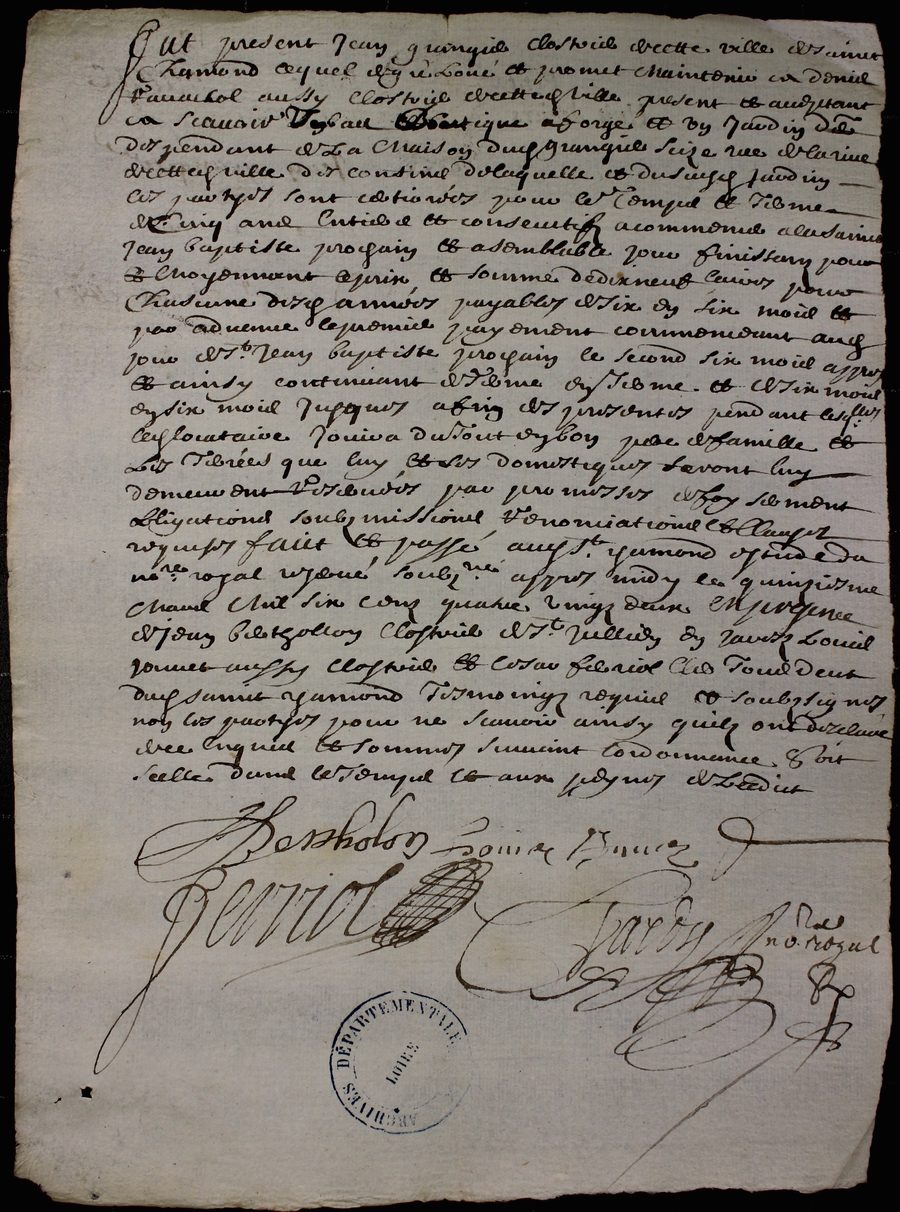 Fut present Jean granguis clostrié de cette ville de sainct
Chamond lequel de gré Loué et promet maintenir a denis
Ravachol aussy clostrié de cette ville present et acceptant
a scavoir Un bas boutique a forge et un Jardin
despendant de La Maison dud granguis size rue de la rive
de cette ville des confins de laquelle et dususd Jardin
les partyes sont certiorées pour le temps et terme
de cinq ans entiers et consecutifs a commencer a la sainct
Jean baptiste prochain et a semblable jour finissant pour
et moyennant le prix et somme de dixneuf livres pour
chascune desd années payables de six en six mois et
par advance le premier payement commencant aud
jour de st Jean baptiste prochain le second six mois appres
et ainsy continuant de terme en terme et de six mois
en six mois jusques a fin des presentes pendant lesqlles
led locataire Jouira du tout en bon pere de famille et
Les que luy et ses domestiques seront luy
demeurent reservées par promesses de foy serment
obligations soubzmissions renonciations et clauses
requises faict et passé aud st chamond estude du
nore royal reservé soubzné appres midy le quinziesme
mars mil six cens quatre vingz deux en presence
de Jean bertholon clostrié de st Jullien en Jarez Louis
Jonnet aussy clostrié et cesar ferriol
dud sainct chamond tesmoingz requis et soubzsignes
non les partyes pour ne scavoir ainsy quilz ont desclairé
de ce enquis et sommes suivant lordonnance soit
scellé dans le temps et aux peynes de Ledict
JBertholon Louis
Ferriol
Hardy nore royal
ARCHIVES DÉPARTEMENTALES
LOIRE